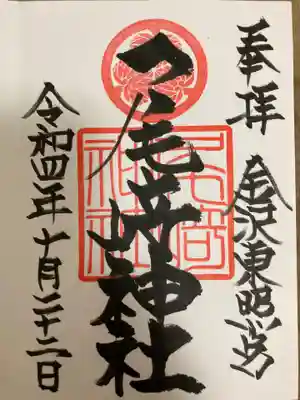 奉拝 金沢東照宮
尾崎神社
尾崎
神社
令和四年十月二十二日